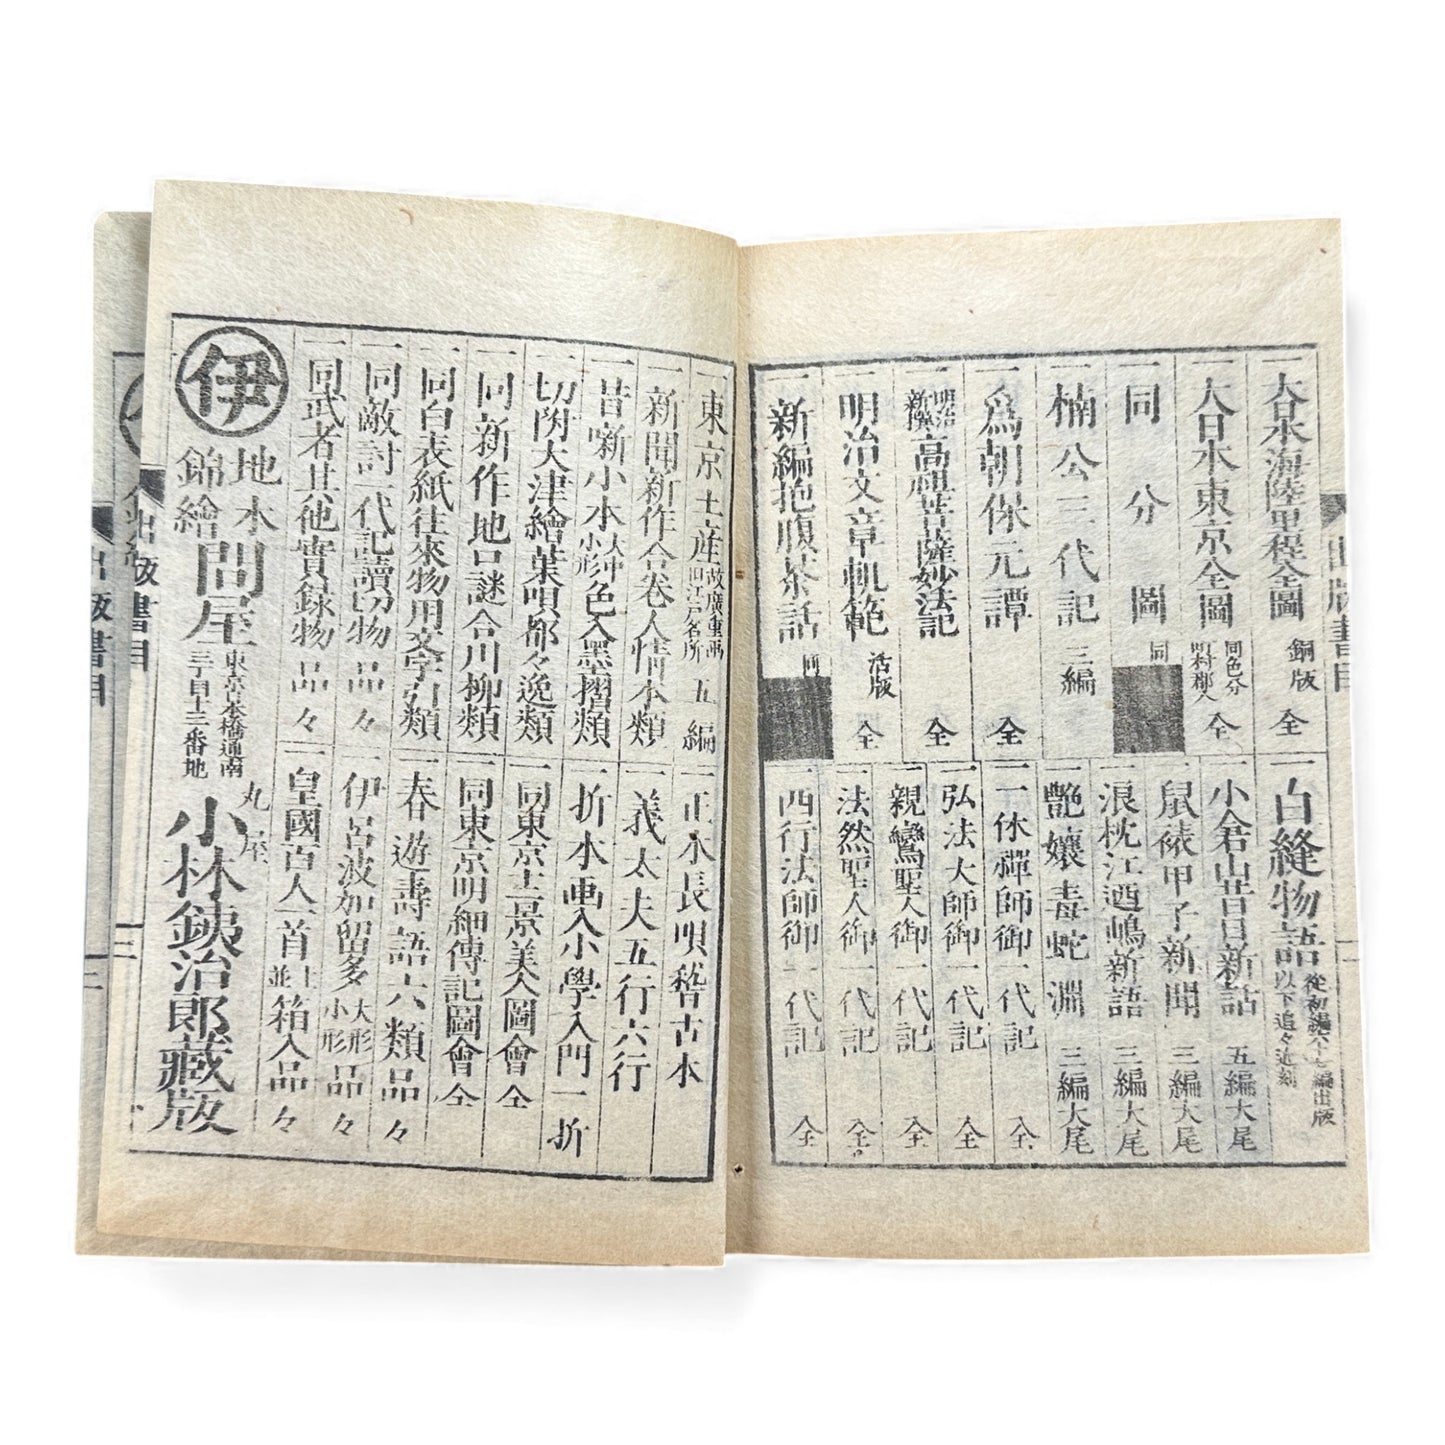 一大日本海陸里程全圖 銅版 全
一大日本東京全圖 同色分 町村郡入 全
一同 分 圖 同
一楠公三代記 三編
一爲朝保元譚 全
一明治新撰高祖菩薩妙法記 全
一明治文章軌範 活版 全
一新編抱腹茶話 同
一白縫物語 従初編六十七編出版 以下追々近刻
一小倉山昔日新話 五編大尾
一鼠裱甲子新聞 三編大尾
一浪枕江迺嶋新語 三編大尾
一艶孃毒蛇淵 三編大尾
一一休禪師御一代記 全
一弘法大師御一代記 全
一親鸞聖人御一代記 全
一法然聖人御一代記 全
一西行法師御一代記 全
出版書目
一東京土産 故廣重画 旧江戸名所 五編
一新聞新作合巻人情本類
一昔噺小本 大中小形 色入墨摺類
一切附大津繪葉唄都々逸類
一同新作地口謎合川柳類
一同白表紙往來物用文字引類
一同敵討一代記讀切物 品々
一同武者其他實録物 品々
一正本長唄稽古本
一義太夫五行六行
一折本画入小學入門一折
一同東京十二景美人圖會 全
一同東京明細傳記圖會 全
一春遊壽語六類品々
一伊呂波加留多 大形 小形 品々
一皇國百人一首 上 並 箱入品々
伊
地本
錦繪
問屋
東京日本橋通南
三丁目十三番地
丸屋
小林鉄治郎藏版
出版書目
三
出版書目
三